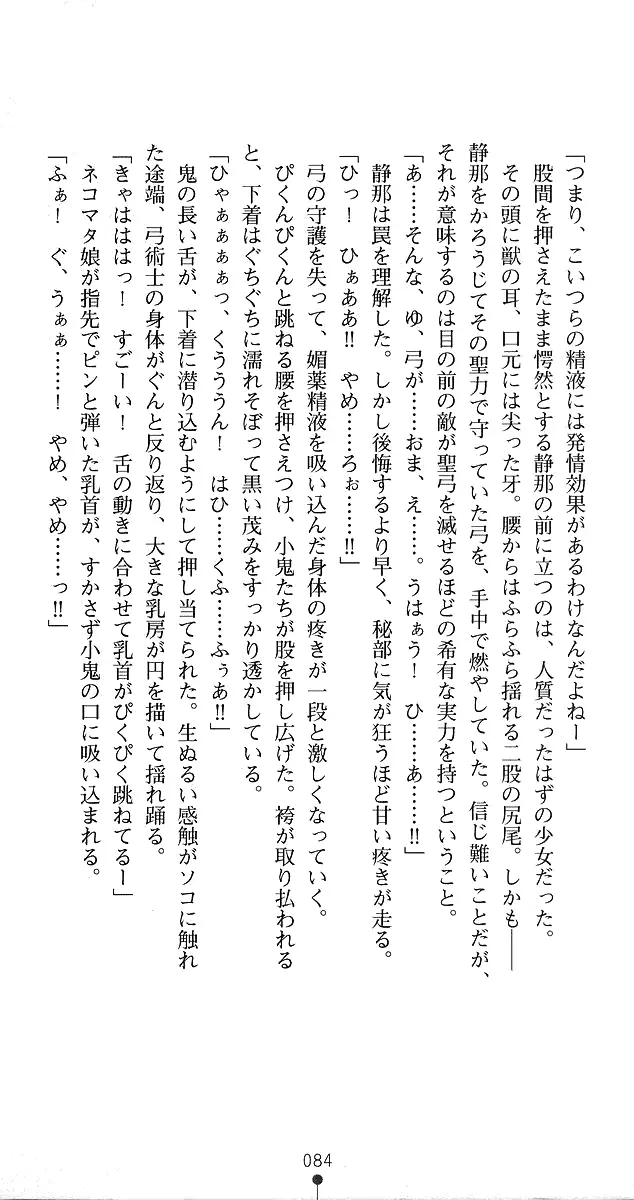 「つまり、こいつらの精液には発情効果があるわけなんだよねー」
股間を押さえたまま愕然とする静那の前に立つのは、人質だったはずの少女だった。
その頭に獣の耳、口元には尖った牙。腰からはふらふら揺れる二股の尻尾。しかも――
静那をかろうじてその聖力で守っていた弓を、手中で燃やしていた。信じ難いことだが、
それが意味するのは目の前の敵が聖弓を滅せるほどの希有な実力を持つということ。
「あ……そんな、ゆ、弓が……おま、え……。うはぁう！　ひ……あ……!!」
静那は罠を理解した。しかし後悔するより早く、秘部に気が狂うほど甘い疼きが走る。
「ひっ！　ひぁああ!!　やめ……ろぉ……!!」
弓の守護を失って、媚薬精液を吸い込んだ身体の疼きが一段と激しくなっていく。
ぴくんぴくんと跳ねる腰を押さえつけ、小鬼たちが股を押し広げた。袴が取り払われる
と、下着はぐちぐちに濡れそぼって黒い茂みをすっかり透かしている。
「ひゃぁぁぁぁっ、くうううん！　はひ……くふ……ふぅあ!!」
鬼の長い舌が、下着に潜り込むようにして押し当てられた。生ぬるい感触がソコに触れ
た途端、弓術士の身体がぐんと反り返り、大きな乳房が円を描いて揺れ踊る。
「きゃははははっ！　すごーい！　舌の動きに合わせて乳首がぴくぴく跳ねてるー」
ネコマタ娘が指先でピンと弾いた乳首が、すかさず小鬼の口に吸い込まれる。
「ふぁ！　ぐ、うぁぁ……！　やめ、やめ……っ!!」
084